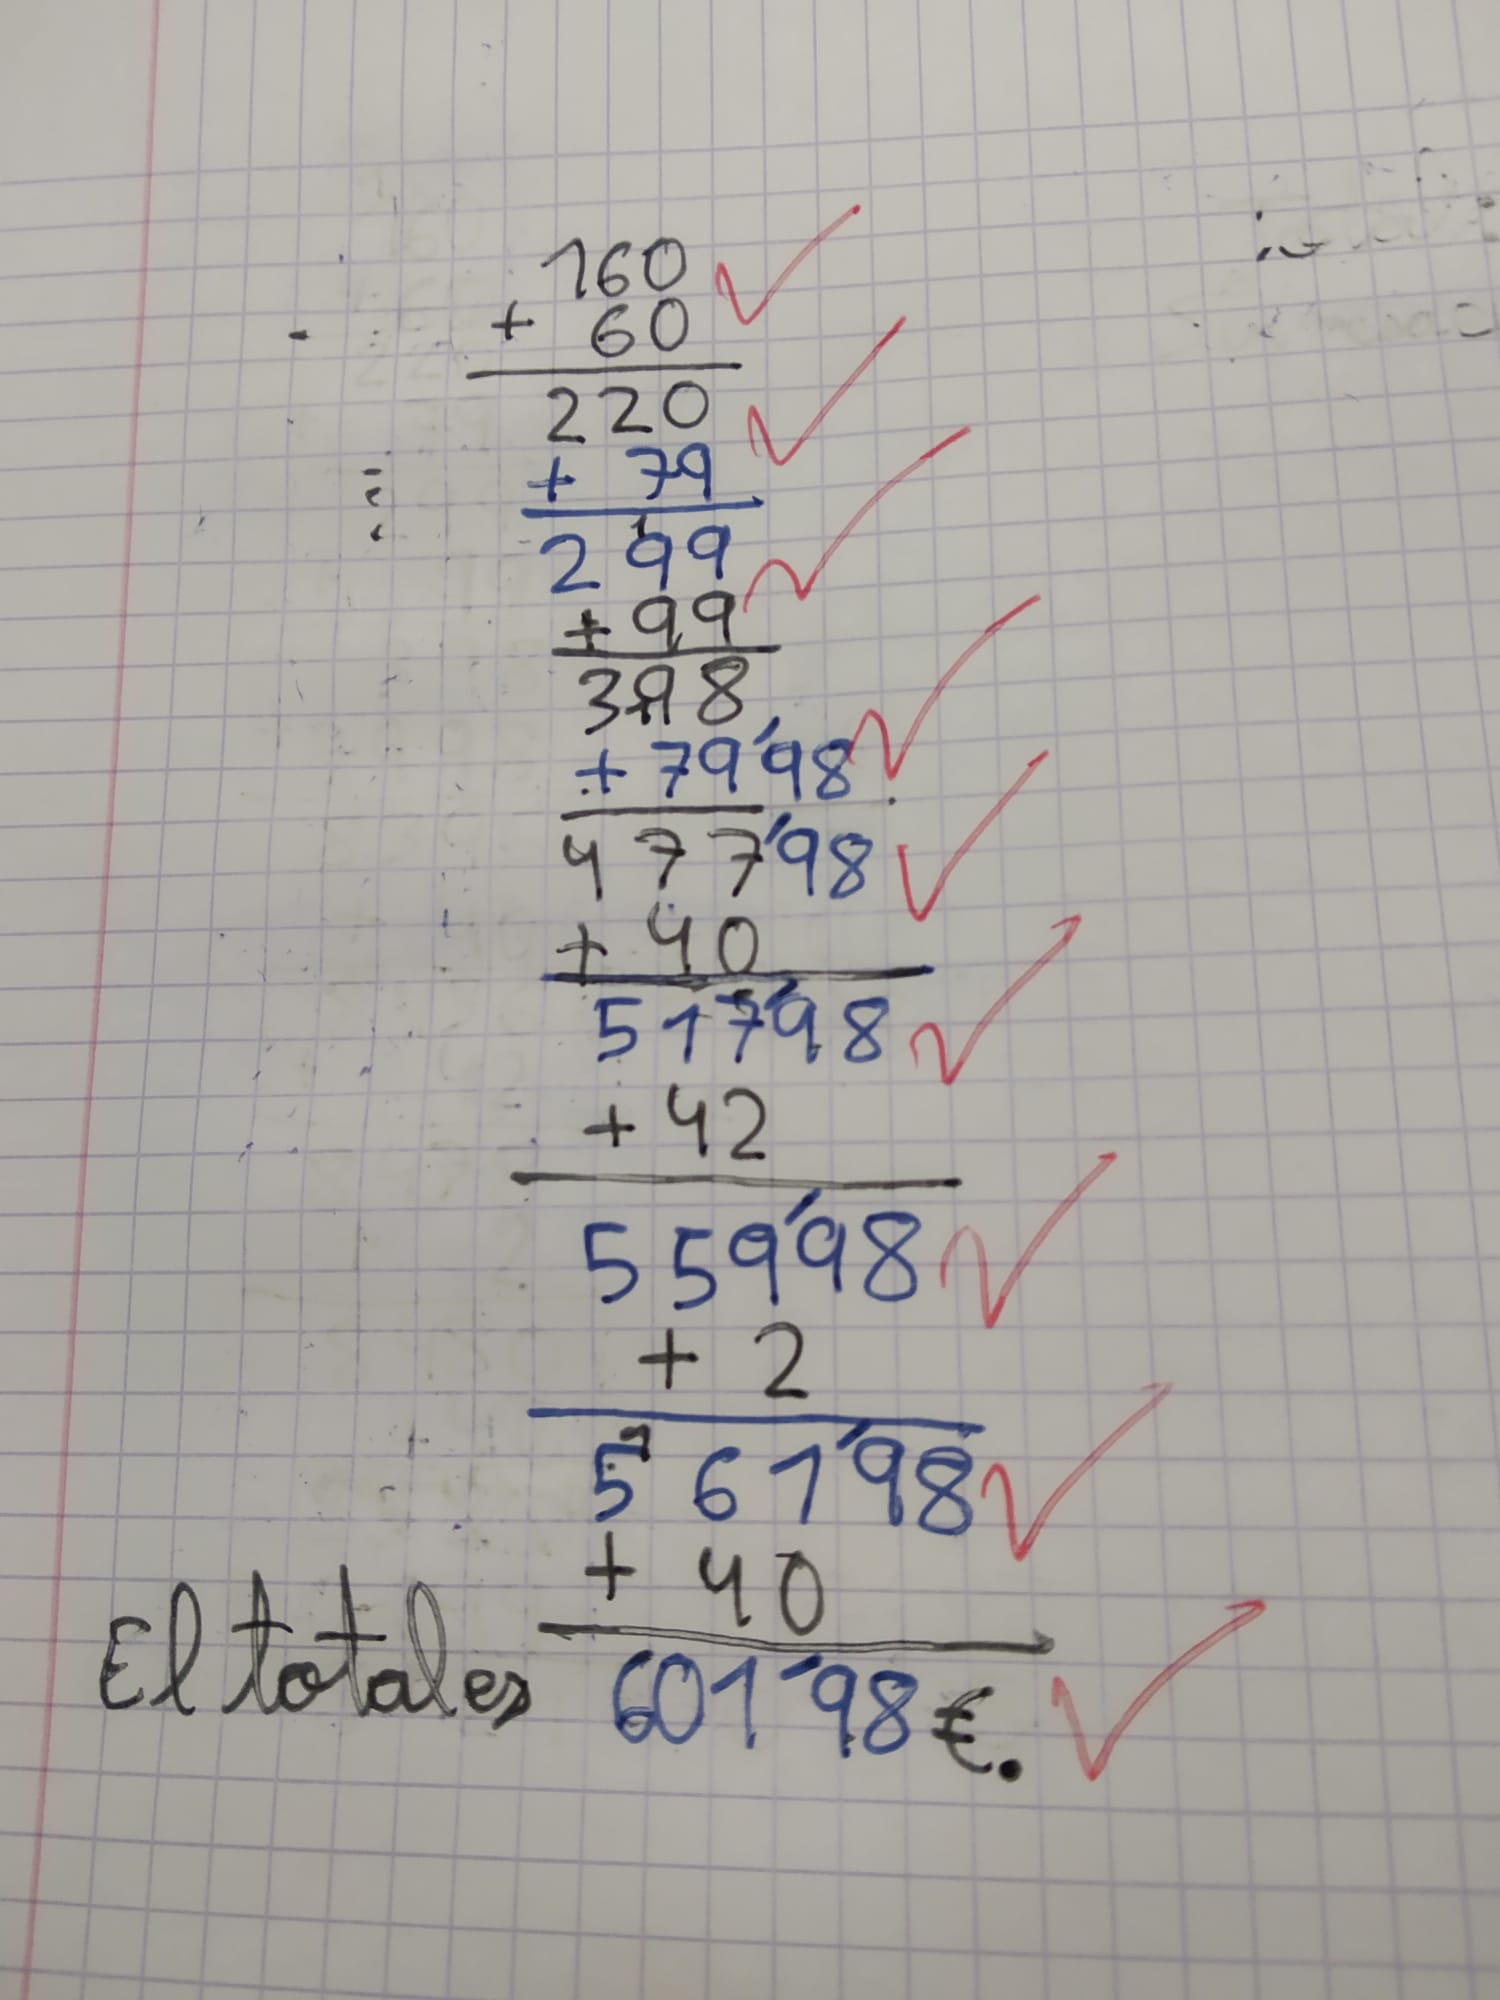 160
+ 60
220
+ 79
299
+ 99
398
+ 79'98
477'98
+ 40
517'98
+ 42
559'98
+ 2
561'98
+ 40
El total es 601'98 €.